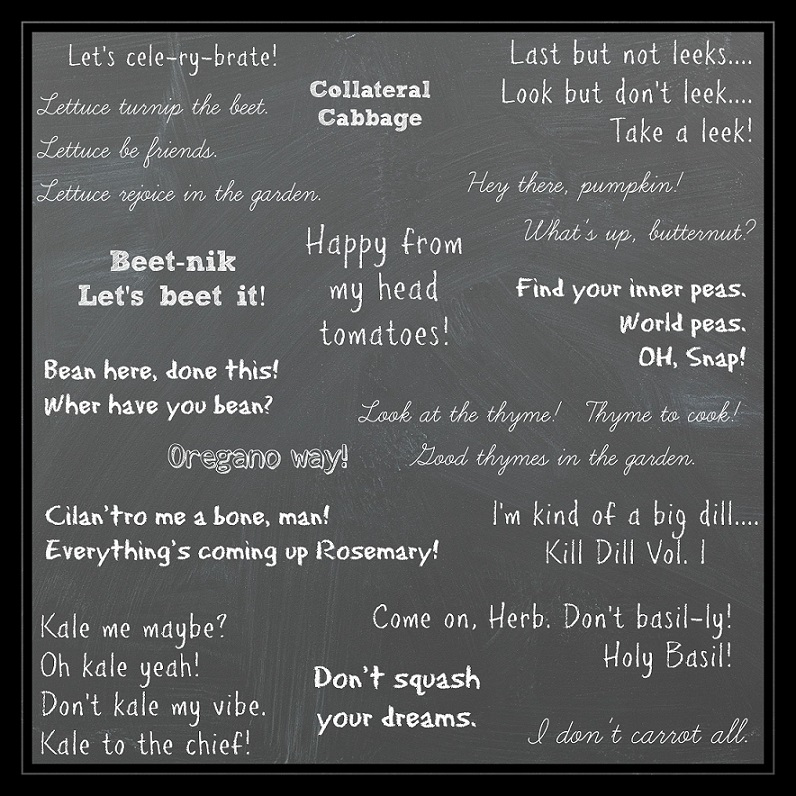 Let's cele-ry-brate!
Lettuce turnip the beet.
Lettuce be friends.
Lettuce rejoice in the garden.
Collateral
Cabbage
Last but not leeks....
Look but don't leek....
Take a leek!
Hey there, pumpkin!
What's up, butternut?
Beet-nik
Let's beet it!
Happy from
my head
tomatoes!
Find your inner peas.
World peas.
OH, Snap!
Bean here, done this!
Wher have you bean?
Look at the thyme! Thyme to cook!
Good thymes in the garden.
Oregano way!
Cilan'tro me a bone, man!
Everything's coming up Rosemary!
I'm kind of a big dill....
Kill Dill Vol. 1
Kale me maybe?
Oh kale yeah!
Don't kale my vibe.
Kale to the chief!
Come on, Herb. Don't basil-ly!
Holy Basil!
Don't squash
your dreams.
I don't carrot all.